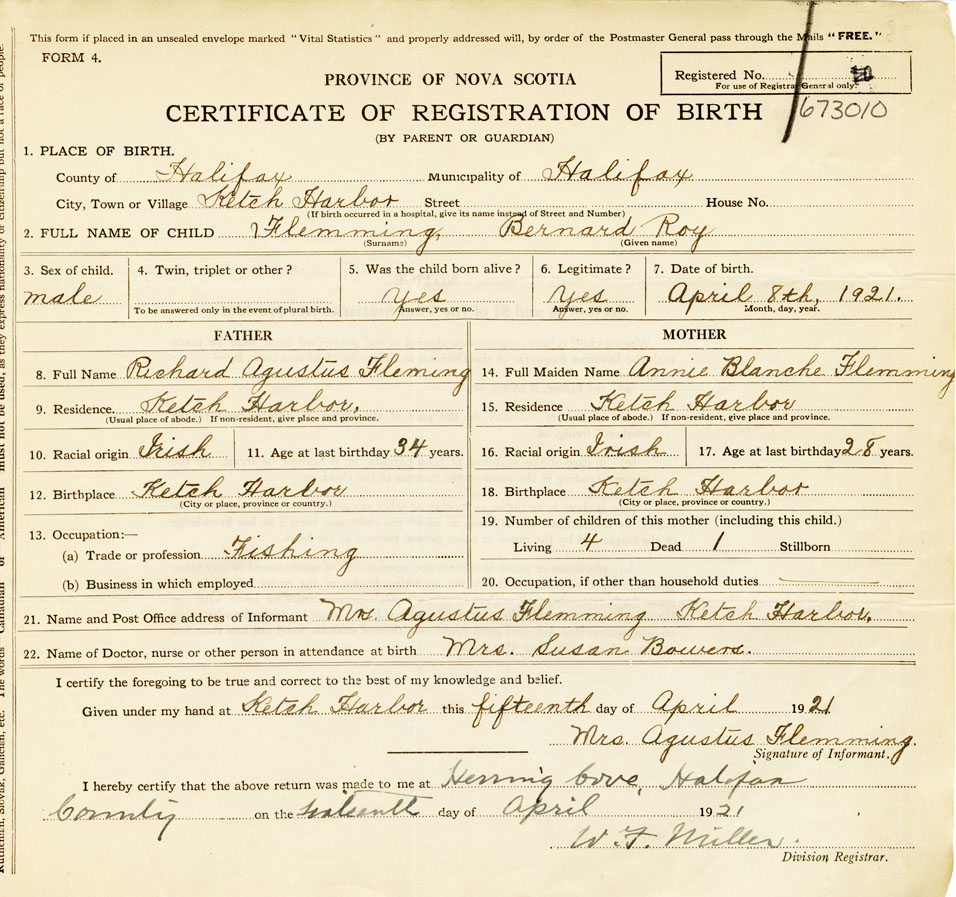 This form if placed in an unsealed envelope marked "Vital Statistics" and properly addressed will, by order of the Postmaster General pass through the Mails "FREE."
FORM 4.
PROVINCE OF NOVA SCOTIA
Registered No. 10
For use of Registrar General only.
673010
CERTIFICATE OF REGISTRATION OF BIRTH
(BY PARENT OR GUARDIAN)
1. PLACE OF BIRTH.
County of Halifax Municipality of Halifax
City, Town or Village Ketch Harbor Street House No.
(If birth occurred in a hospital, give its name instead of Street and Number)
2. FULL NAME OF CHILD Flemming, Bernard Roy
(Surname) (Given name)
3. Sex of child. 4. Twin, triplet or other? 5. Was the child born alive? 6. Legitimate? 7. Date of birth.
male Yes Yes April 8th, 1921.
To be answered only in the event of plural birth. Answer, yes or no. Answer, yes or no. Month, day, year.
FATHER MOTHER
8. Full Name Richard Agustus Fleming 14. Full Maiden Name Annie Blanche Flemming
9. Residence. Ketch Harbor. 15. Residence Ketch Harbor
(Usual place of abode.) If non-resident, give place and province. (Usual place of abode.) If non-resident, give place and province.
10. Racial origin Irish 11. Age at last birthday 34 years. 16. Racial origin Irish 17. Age at last birthday 28 years.
12. Birthplace Ketch Harbor 18. Birthplace Ketch Harbor
(City or place, province or country.) (City or place, province or country.)
13. Occupation:— 19. Number of children of this mother (including this child.)
(a) Trade or profession Fishing Living 4 Dead 1 Stillborn
(b) Business in which employed 20. Occupation, if other than household duties
21. Name and Post Office address of Informant Mrs. Agustus Flemming Ketch Harbor.
22. Name of Doctor, nurse or other person in attendance at birth Mrs. Susan Bowers.
I certify the foregoing to be true and correct to the best of my knowledge and belief.
Given under my hand at Ketch Harbor this fifteenth day of April 1921
Mrs. Agustus Flemming.
Signature of Informant.
I hereby certify that the above return was made to me at Herring Cove, Halifax
County on the day of April 1921
W. F. Miller.
Division Registrar.